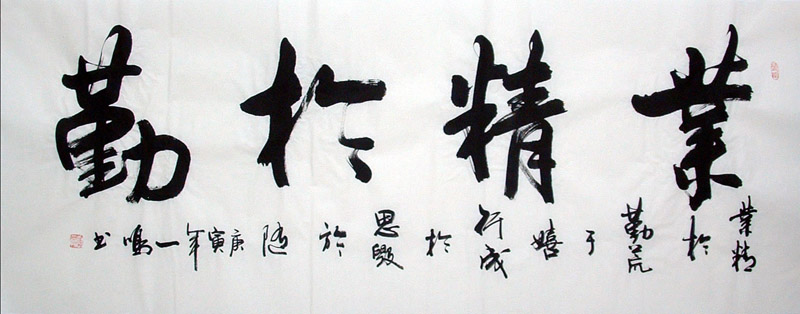 業精於勤
業精於勤荒于嬉行成於思毁於随庚寅年一鳴书